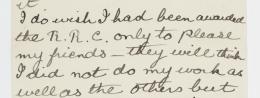 it
I do wish I had been awarded
the R.R.C. only to please
my friends – they will think
I did not do my work as
well as the others but